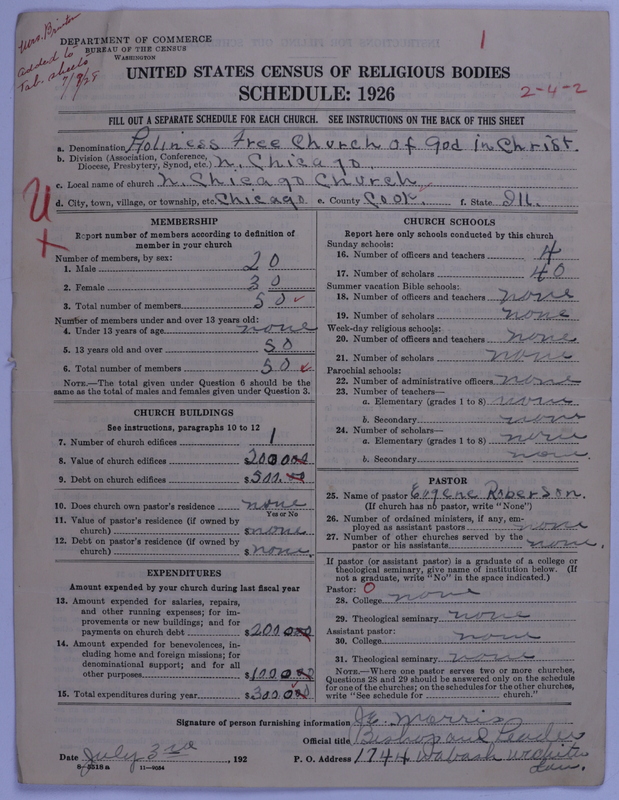 Mrs. Brinton
added to
Tab. sheets
7/9/28
DEPARTMENT OF COMMERCE
BUREAU OF THE CENSUS
WASHINGTON
1
UNITED STATES CENSUS OF RELIGIOUS BODIES
SCHEDULE: 1926
2-4-2
FILL OUT A SEPARATE SCHEDULE FOR EACH CHURCH. SEE INSTRUCTIONS ON THE BACK OF THIS SHEET
a. Denomination Holiness Free Church of God in Christ.
b. Division (Association, Conference,
Diocese, Presbytery, Synod, etc.) N. Chicago
c. Local name of church N. Chicago Church
d. City, town, village, or township, etc. Chicago e. County Cook. f. State Ill.
MEMBERSHIP
Report number of members according to definition of
member in your church
Number of members, by sex:
1. Male 20
2. Female 30
3. Total number of members 50
Number of members under and over 13 years old:
4. Under 13 years of age none
5. 13 years old and over 50
6. Total number of members 50
NOTE.—The total given under Question 6 should be the
same as the total of males and females given under Question 3.
CHURCH BUILDINGS
See instructions, paragraphs 10 to 12
7. Number of church edifices 1
8. Value of church edifices $200000
9. Debt on church edifices $500.00
10. Does church own pastor's residence none
Yes or No
11. Value of pastor's residence (if owned by
church) $none
12. Debt on pastor's residence (if owned by
church) $none.
EXPENDITURES
Amount expended by your church during last fiscal year
13. Amount expended for salaries, repairs,
and other running expenses; for im-
provements or new buildings; and for
payments on church debt $200.00
14. Amount expended for benevolences, in-
cluding home and foreign missions; for
denominational support; and for all
other purposes $100.00
15. Total expenditures during year $300.00
CHURCH SCHOOLS
Report here only schools conducted by this church
Sunday schools:
16. Number of officers and teachers 4
17. Number of scholars 40
Summer vacation Bible schools:
18. Number of officers and teachers none
19. Number of scholars none
Week-day religious schools:
20. Number of officers and teachers none
21. Number of scholars none
Parochial schools:
22. Number of administrative officers none
23. Number of teachers—
a. Elementary (grades 1 to 8) none
b. Secondary none
24. Number of scholars—
a. Elementary (grades 1 to 8) none
b. Secondary none.
PASTOR
25. Name of pastor Eugene Roberson.
(If church has no pastor, write "None")
26. Number of ordained ministers, if any, em-
ployed as assistant pastors none
27. Number of other churches served by the
pastor or his assistants none.
If pastor (or assistant pastor) is a graduate of a college or
theological seminary, give name of institution below. (If
not a graduate, write "No" in the space indicated.)
Pastor: 0
28. College none
29. Theological seminary none
Assistant pastor:
30. College none
31. Theological seminary none
NOTE.—Where one pastor serves two or more churches,
Questions 28 and 29 should be answered only on the schedule
for one of the churches; on the schedules for the other churches,
write "See schedule for church."
Signature of person furnishing information J.E. Morris
Official title Bishop and Leader
Date July 3rd, 192 P. O. Address 1744 Wabash Wichita
Kan.
8-5318a 11-9034